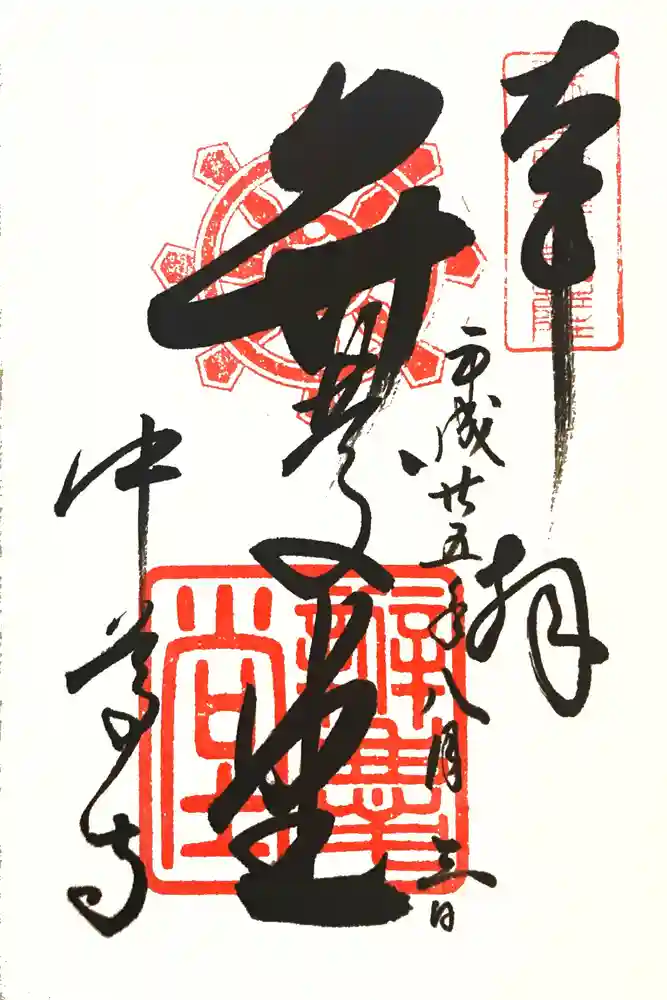 奉拝
平成廿五年八月三日
弁慶堂
中尊寺